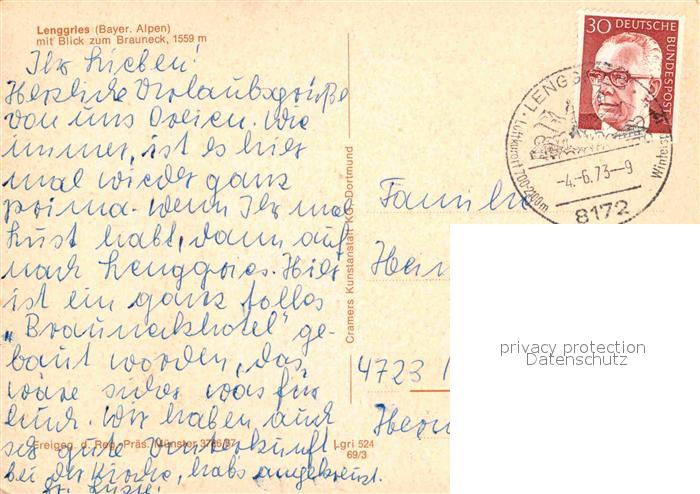 Lenggries (Bayer. Alpen)
mit Blick zum Brauneck, 1559 m
Ihr Lieben!
Herzliche Urlaubsgrüße
von uns Dreien. Wie
immer, ist es hier
mal wieder ganz
prima. Wenn Ihr mal
Lust habt, dann auf
nach Lenggries. Hier
ist ein ganz tolles
„Brauneckhotel" ge-
baut worden, das
wäre sicher was für
Euch. Wir haben auch
sehr gute Unterkunft
bei der Kirche, habs angekreuzt.
Freigeg. d. Reg.-Präs. Münster
Lgri 524
69/3
Cramers Kunstanstalt KG, Dortmund
30 DEUTSCHE
BUNDESPOST
LENGG
Luftkurort 700-2100m
Winter
-4.-6.73-9
8172
Familie
Hein
4723
privacy protection
Datenschutz